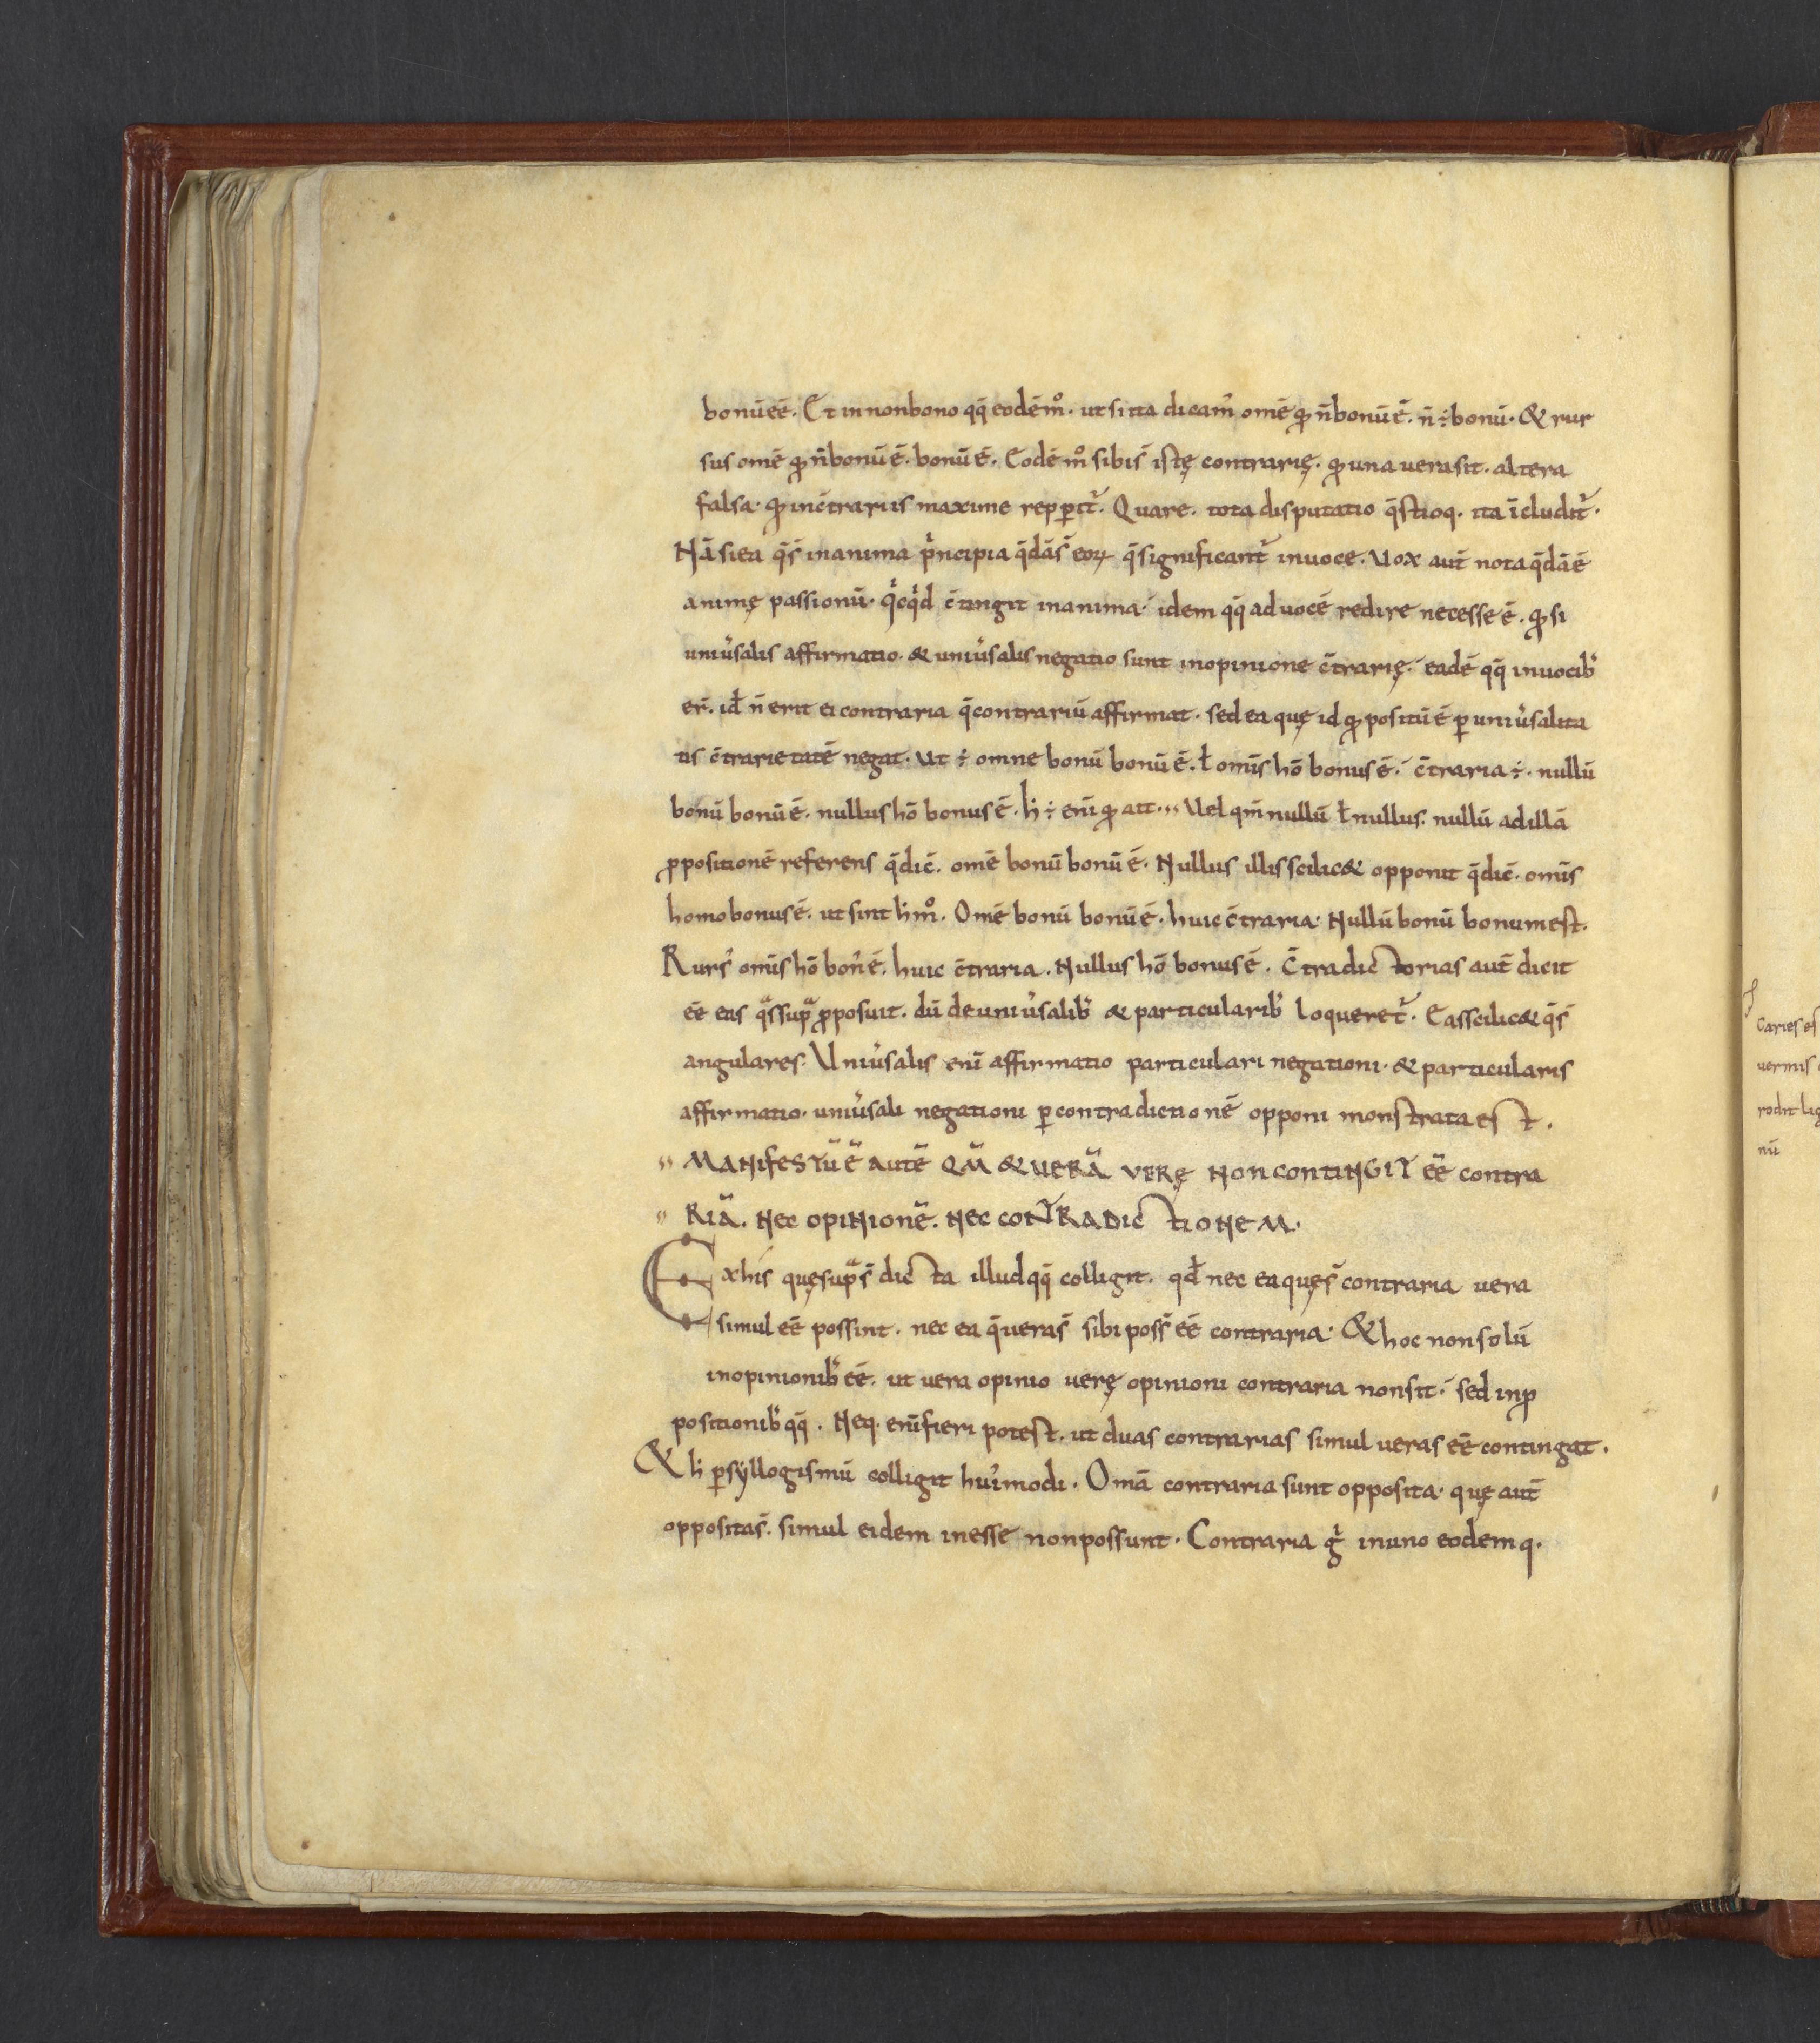 bonū eē. Et in non bono qq̄ eodē m̊. ut si ita dicam᾽ omē qđ n̄ bonū ē. n̄ ÷ bonū. & rur
sus omē qđ n̄ bonū ē. bonū ē. Eodē m̊ sibi s̄ istę contrarię. qđ una uera sit. altera
falsa. qđ in c̄trariis maxime repperit᾽. Quare. tota disputatio q̄stioq. ita īcludit᾽.
Nā si ea q̄ s̄ in anima p͛ncipia q̄dā s̄ eoꝝ q̄ significant᾽ in uoce. Vox aut̄ nota q̄dā ē
animę passionū. q͛cq͛d c̄tingit in anima. idem qq̄ ad uocē redire necesse ē. qđ si
uniu͛salis affirmatio. & uniu͛salis negatio sunt in opinione c̄trarię. eadē qq̄ in uocib᾽
er̄. id n̄ erit ei contraria q̄ contrariū affirmat. sed ea quę id qđ positū ē ꝑ uniu͛salita
tis c̄trarietatē negat. Ut ÷ omne bonū bonū ē. ł om̄s hō bonus ē. c̄traria ÷. nullū
bonū bonū ē. nullus hō bonus ē. h̓ ÷ eni qđ ait. Vel qm̄ nullū ł nullus. nullū ad illā
ꝓpositionē referens q̄ dic̄. omē bonū bonū ē. Nullus illi scilic& opponit q̄ dic̄. om̄s
homo bonus ē. ut sint h̓ m̊. Omē bonū bonū ē. huic c̄traria. Nullū bonū bonum est.
Rurs᾽ om̄s hō bon᾽ ē. huic c̄traria. Nullus hō bonus ē. C̄tradictorias aut̄ dicit
eē eas qᵃs supᵃ ꝓposuit. dū de uniu͛salib᾽ & particularib᾽ loqueret᾽. Eas scilic& q̄ s̄
angulares. Uniu͛salis eni affirmatio particulari negationi. & particularis
affirmatio. uniu͛sali negationi ꝑ contradictionē opponi monstrata est.
MANIFESTŪ Ē AUTĒ QM̄ & UERĀ VERĘ NON CONTINGIT EĒ CONTRA
RIĀ. NEC OPINIONĒ. NEC CONTRADICTIONEM.
Ex his quę supᵃ s̄ dicta illud qq̄ colligit. qđ nec ea quę s̄ contraria uera
simul eē possint. nec ea q̄ uera s̄ sibi poss̄ eē contraria. & hoc non solū
in opinionib᾽ eē. ut uera opinio uerę opinioni contraria non sit. sed in ꝓ
positionib᾽ qq̄. Neq. eni fieri potest. ut duas contrarias simul ueras eē contingat.
& h̓ ꝑ syllogismū colligit hui᾽modi. Omā contraria sunt opposita. quę aut̄
opposita s̄. simul eidem inesse non possunt. Contraria g͛ in uno eodemq.
Caries es
uermis
rodit lig
nū